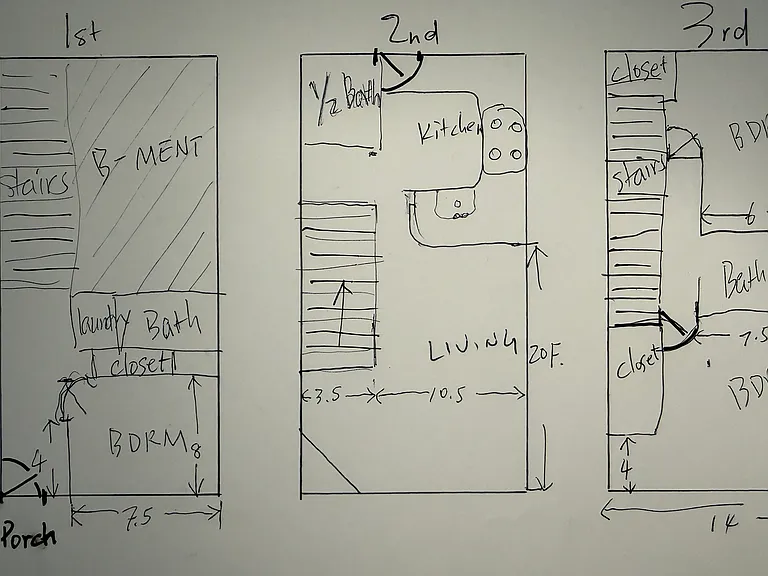 1st
stairs
B-MENT
laundry
Bath
closet
BDRM
8
4
7.5
Porch
2nd
1/2 Bath
Kitchen
LIVING
20F.
3.5
10.5
3rd
closet
stairs
BD
6
Bath
7.5
closet
BD
4
14